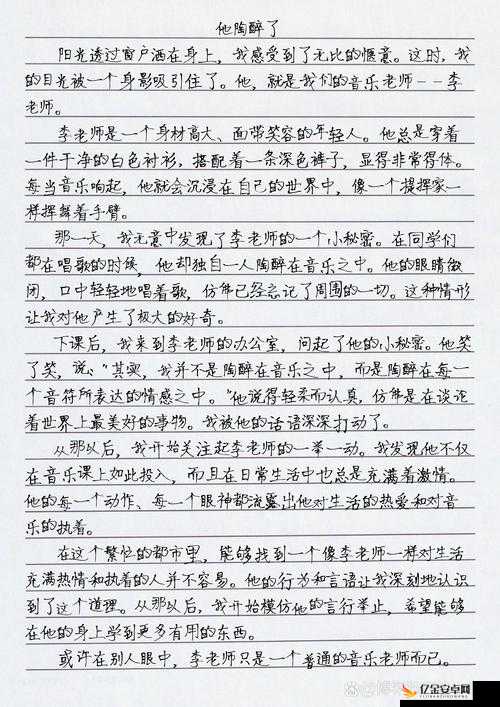 他陶醉了
阳光透过窗户洒在身上，我感受到了无比的惬意。这时，我
的目光被一个身影吸引住了。他，就是我们的音乐老师--李
老师。
李老师是一个身材高大、面带笑容的年轻人。他总是穿着
一件干净的白色衬衫，搭配着一条深色裤子，显得非常得体。
每当音乐响起，他就会沉浸在自己的世界中，像一个提挥家一
样挥舞着手臂。
那一天，我无意中发现了李老师的一个小秘密。在同学们
都在唱歌的时候，他却独自一人陶醉在音乐之中。他的眼睛微
闭，口中轻轻地唱着歌，仿佛已经忘记了周围的一切。这种情形
让我对他产生了极大的好奇。
下课后，我来到李老师的办公室，问起了他的小秘密。他笑
了笑，说：“其实，我并不是陶醉在音乐之中，而是陶醉在每一
个音符所表达的情感之中。”他说得轻柔而认真，仿佛是在谈论
着世界上最美好的事物。我被他的话语深深打动了。
从那以后，我开始关注起李老师的一举一动。我发现他不仅
在音乐课上如此投入，而且在日常生活中也总是充满着激情。
他的每一个动作、每一个眼神都流露出他对生活的热爱和对音
乐的执着。
在这个繁忙的都市里，能够找到一个像李老师一样对生活
充满热情和执着的人并不容易。他的行为和言语让我深刻地认识
到了这个道理。从那以后，我开始模仿他的言行举止，希望能够
在他的身上学到更多有用的东西。
或许在别人眼中，李老师只是一个普通的音乐老师而已。
亿金安卓网